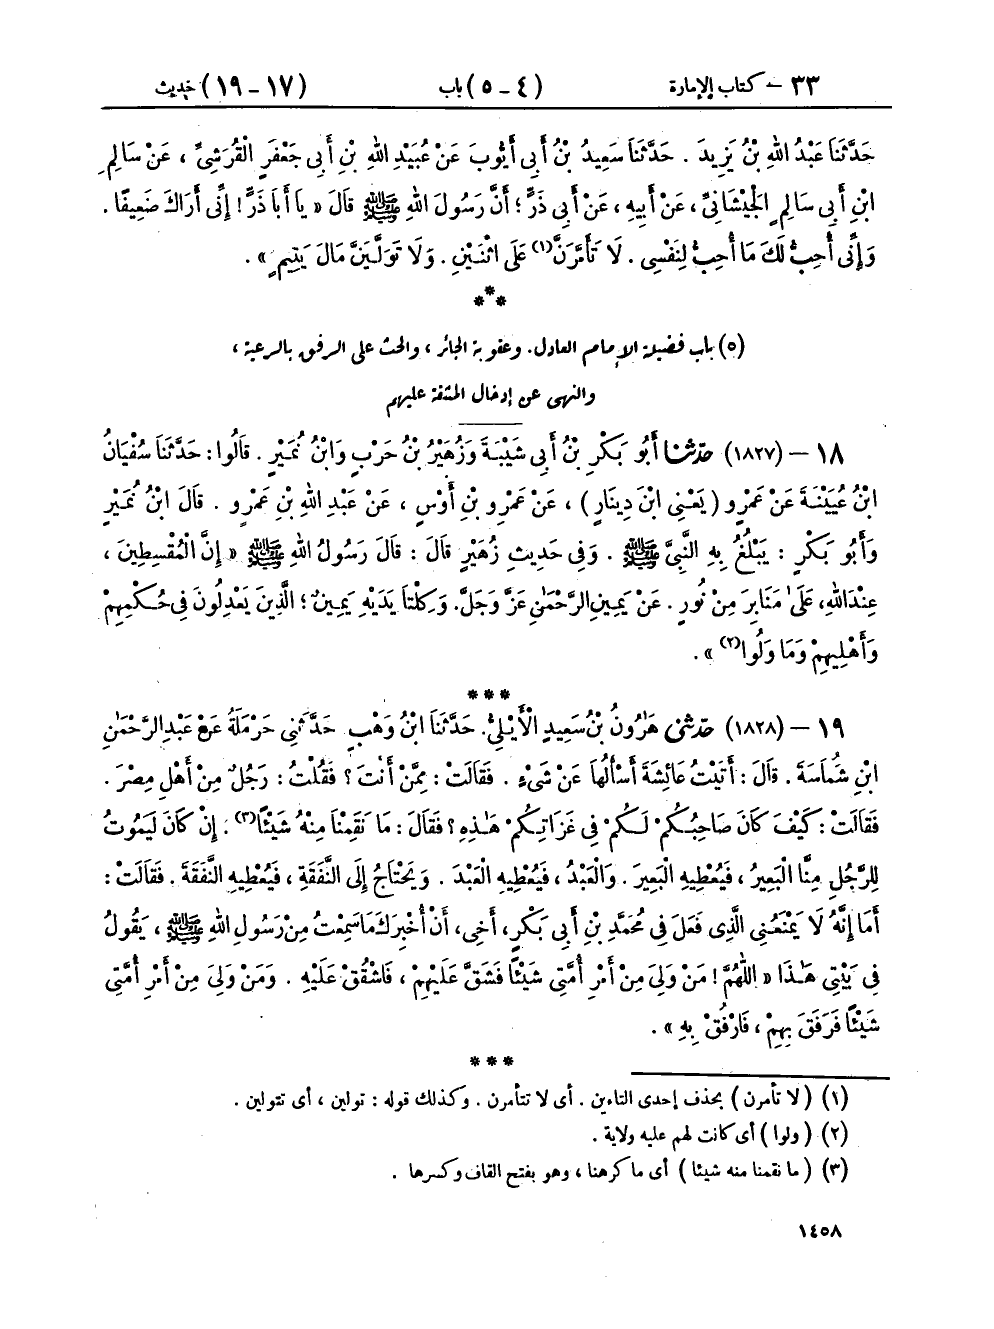 ٣٣ – كتاب الإمارة (٤ – ٥) باب (١٧ – ١٩) حديث
حَدَّثَنَا عَبْدُ اللهِ بْنُ يَزِيدَ . حَدَّثَنَا سَعِيدُ بْنُ أَبِي أَيُّوبَ عَنْ عُبَيْدِ اللهِ بْنِ أَبِي جَعْفَرٍ الْقُرَشِيِّ ، عَنْ سَالِمِ
ابْنِ أَبِي سَالِمٍ الْجَيْشَانِيِّ ، عَنْ أَبِيهِ ، عَنْ أَبِي ذَرٍّ ؛ أَنَّ رَسُولَ اللهِ ﷺ قَالَ « يَا أَبَا ذَرٍّ ! إِنِّي أَرَاكَ ضَعِيفًا .
وَإِنِّي أُحِبُّ لَكَ مَا أُحِبُّ لِنَفْسِي . لَا تَأَمَّرَنَّ(١) عَلَى اثْنَيْنِ . وَلَا تَوَلَّيَنَّ مَالَ يَتِيمٍ » .
***
(٥) باب فضيلة الإمام العادل. وعقوبة الجائر ، والحث على الرفق بالرعية ،
والنهى عن إدخال المشقة عليهم
١٨ – (١٨٢٧) حدّثنا أَبُو بَكْرِ بْنُ أَبِي شَيْبَةَ وَزُهَيْرُ بْنُ حَرْبٍ وَابْنُ نُمَيْرٍ . قَالُوا : حَدَّثَنَا سُفْيَانُ
ابْنُ عُيَيْنَةَ عَنْ عَمْرٍو ( يَعْنِي ابْنَ دِينَارٍ ) ، عَنْ عَمْرِو بْنِ أَوْسٍ ، عَنْ عَبْدِ اللهِ بْنِ عَمْرٍو . قَالَ ابْنُ نُمَيْرٍ
وَأَبُو بَكْرٍ : يَبْلُغُ بِهِ النَّبِيَّ ﷺ . وَفِي حَدِيثِ زُهَيْرٍ قَالَ : قَالَ رَسُولُ اللهِ ﷺ « إِنَّ الْمُقْسِطِينَ ،
عِنْدَ اللهِ، عَلَىٰ مَنَابِرَ مِنْ نُورٍ . عَنْ يَمِينِ الرَّحْمَٰنِ عَزَّ وَجَلَّ. وَكِلْتَا يَدَيْهِ يَمِينٌ ؛ الَّذِينَ يَعْدِلُونَ فِي حُكْمِهِمْ
وَأَهْلِيهِمْ وَمَا وَلُوا(٢) » .
***
١٩ – (١٨٢٨) حدّثنى هَٰرُونُ بْنُ سَعِيدٍ الْأَيْلِيُّ. حَدَّثَنَا ابْنُ وَهْبٍ حَدَّثَنِي حَرْمَلَةُ عَنْ عَبْدِ الرَّحْمَٰنِ
ابْنِ شُمَاسَةَ . قَالَ : أَتَيْتُ عَائِشَةَ أَسْأَلُهَا عَنْ شَيْءٍ . فَقَالَتْ : مِمَّنْ أَنْتَ ؟ فَقُلْتُ : رَجُلٌ مِنْ أَهْلِ مِصْرَ .
فَقَالَتْ : كَيْفَ كَانَ صَاحِبُكُمْ لَكُمْ فِي غَزَاتِكُمْ هَٰذِهِ ؟ فَقَالَ : مَا نَقِمْنَا مِنْهُ شَيْئًا(٣) . إِنْ كَانَ لَيَمُوتُ
لِلرَّجُلِ مِنَّا الْبَعِيرُ ، فَيُعْطِيهِ الْبَعِيرَ . وَالْعَبْدُ ، فَيُعْطِيهِ الْعَبْدَ . وَيَحْتَاجُ إِلَى النَّفَقَةِ ، فَيُعْطِيهِ النَّفَقَةَ . فَقَالَتْ :
أَمَا إِنَّهُ لَا يَمْنَعُنِي الَّذِي فَعَلَ فِي مُحَمَّدِ بْنِ أَبِي بَكْرٍ ، أَخِي، أَنْ أُخْبِرَكَ مَا سَمِعْتُ مِنْ رَسُولِ اللهِ ﷺ ، يَقُولُ
فِي بَيْتِي هَٰذَا « اللَّهُمَّ ! مَنْ وَلِيَ مِنْ أَمْرِ أُمَّتِي شَيْئًا فَشَقَّ عَلَيْهِمْ ، فَاشْقُقْ عَلَيْهِ . وَمَنْ وَلِيَ مِنْ أَمْرِ أُمَّتِي
شَيْئًا فَرَفَقَ بِهِمْ ، فَارْفُقْ بِهِ » .
***
(١) ( لا تأمرن ) بحذف إحدى التاءين . أى لا تتأمرن . وكذلك قوله : تولين ، أى تتولين .
(٢) ( ولوا ) أى كانت لهم عليه ولاية .
(٣) ( ما نقمنا منه شيئا ) أى ما كرهنا ، وهو بفتح القاف وكسرها .
١٤٥٨